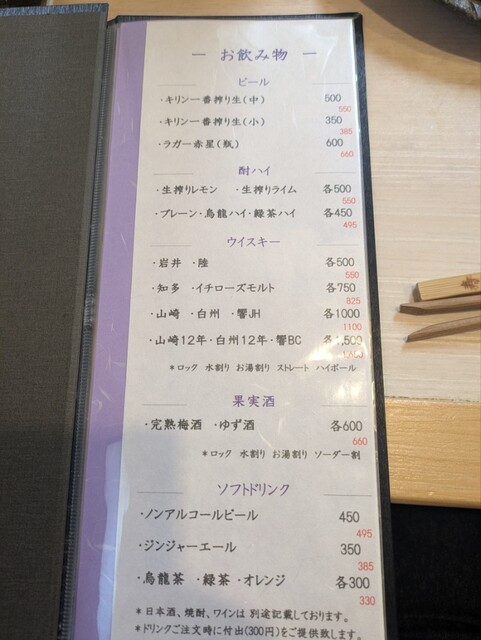 ー お飲み物 ー
ビール
・キリン一番搾り生(中) 500
550
・キリン一番搾り生(小) 350
385
・ラガー赤星(瓶) 600
660
酎ハイ
・生搾りレモン ・生搾りライム 各500
550
・プレーン・烏龍ハイ・緑茶ハイ 各450
495
ウイスキー
・岩井 ・陸 各500
550
・知多 ・イチローズモルト 各750
825
・山崎 ・白州 ・響JH 各1000
1100
・山崎12年・白州12年・響BC 各1,500
*ロック 水割り お湯割り ストレート ハイボール
果実酒
・完熟梅酒 ・ゆず酒 各600
660
*ロック 水割り お湯割り ソーダー割
ソフトドリンク
・ノンアルコールビール 450
495
・ジンジャーエール 350
385
・烏龍茶 ・緑茶 ・オレンジ 各300
330
*日本酒、焼酎、ワインは 別途記載しております。
*ドリンクご注文時に付出(300円)をご提供致します。